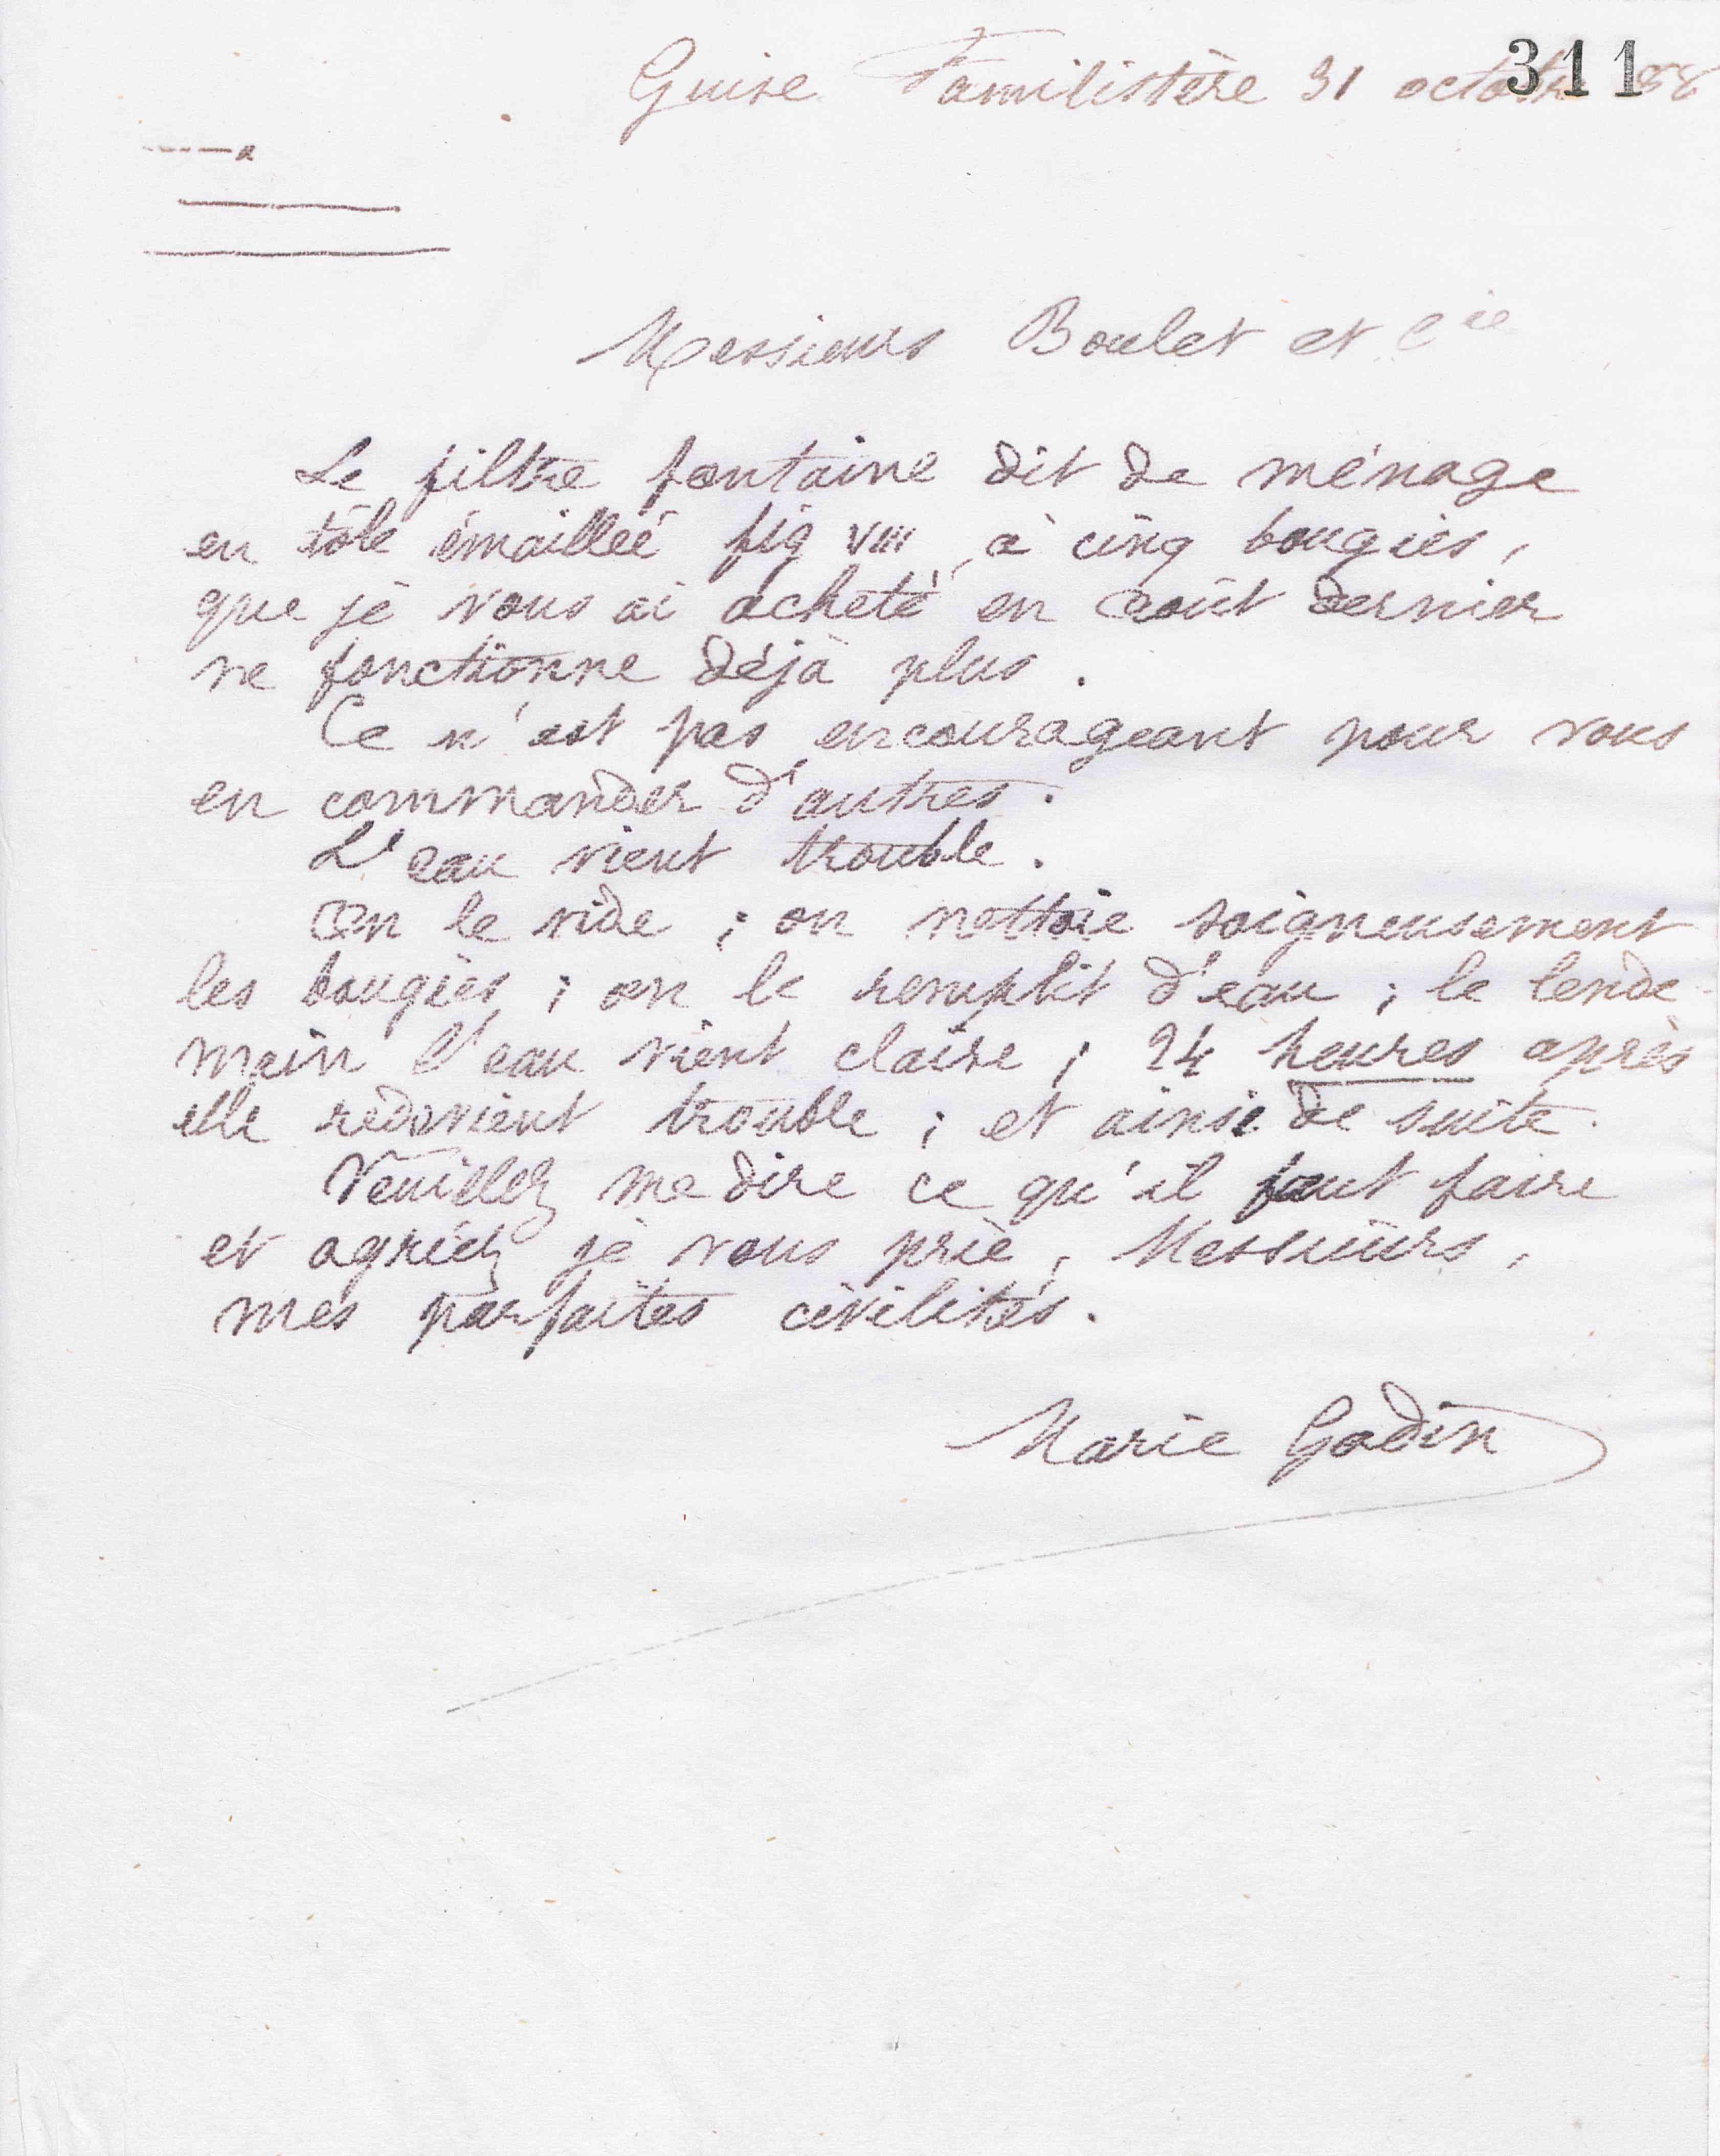 311
Guise Familistère 31 octobre 88
Messieurs Boulet et Cie
Le filtre fontaine dit de ménage
en tôle émaillée fig VIII, à cinq bougies,
que je vous ai acheté en août dernier
ne fonctionne déjà plus.
Ce n'est pas encourageant pour vous
en commander d'autres.
L'eau vient trouble.
On le vide ; on nettoie soigneusement
les bougies ; on le remplit d'eau ; le lende-
main l'eau vient claire ; 24 heures après
elle redevient trouble ; et ainsi de suite.
Veuillez me dire ce qu'il faut faire
et agréez je vous prie, Messieurs,
mes parfaites civilités.
Marie Godin